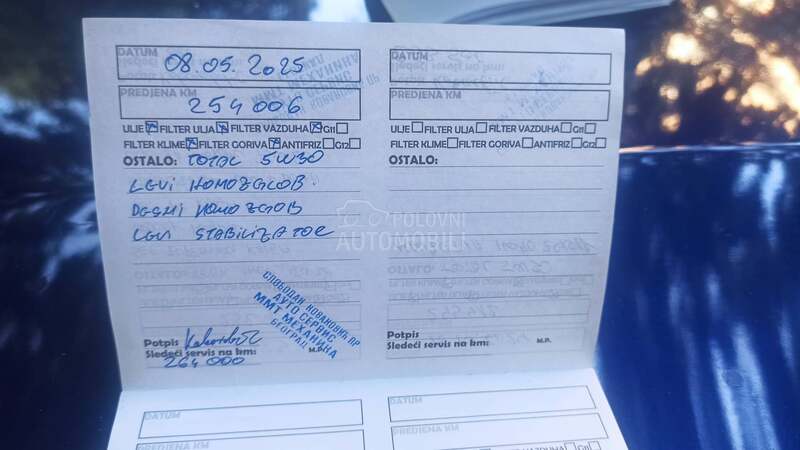 DATUM
08.05.2025
PREDJENA KM
254006
ULJE FILTER ULJA FILTER VAZDUHA G11
FILTER KLIME FILTER GORIVA ANTIFRIZ G12
OSTALO: TOTAL 5W30
LEVI HOMOZGLOB.
DESNI HOMOZGLOB
LEVI STABILIZATOR
СЛОБОДАН НОВАКОВИЋ ПР
АУТО СЕРВИС
ММТ МЕХАНИКА
БЕОГРАД
Potpis
Sledeći servis na km: M.P.
264000
DATUM
PREDJENA KM
ULJE FILTER ULJA FILTER VAZDUHA G11
FILTER KLIME FILTER GORIVA ANTIFRIZ G12
OSTALO:
Potpis
Sledeći servis na km: M.P.
POLOVNI
AUTOMOBILI
DATUM
PREDJENA KM
DATUM
PREDJENA KM
VAZDUHA G11